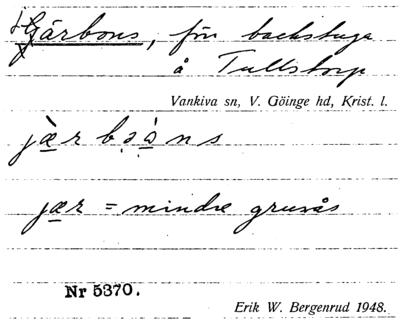 Gärbons, för backstuga
å Tullstorp
Vankiva sn, V. Göinge hd, Krist. l.
jær = mindre grusås
Nr 5370.
Erik W. Bergenrud 1948.